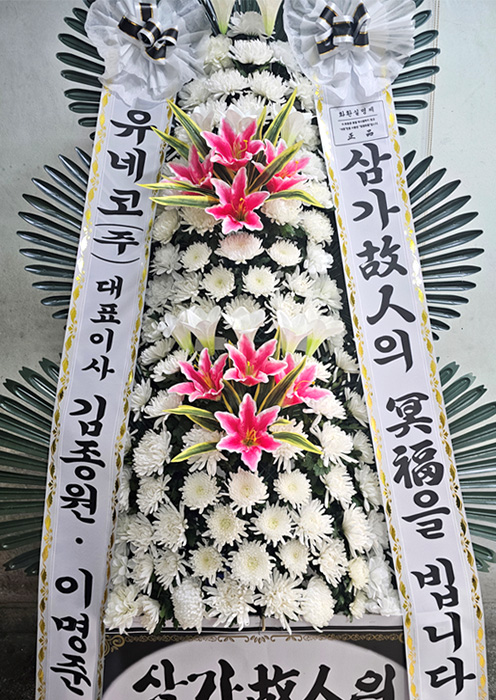 유네코(주) 대표이사 김종원 · 이명준
화환실명제
正品
삼가 故人의 冥福을 빕니다
삼가 故人의